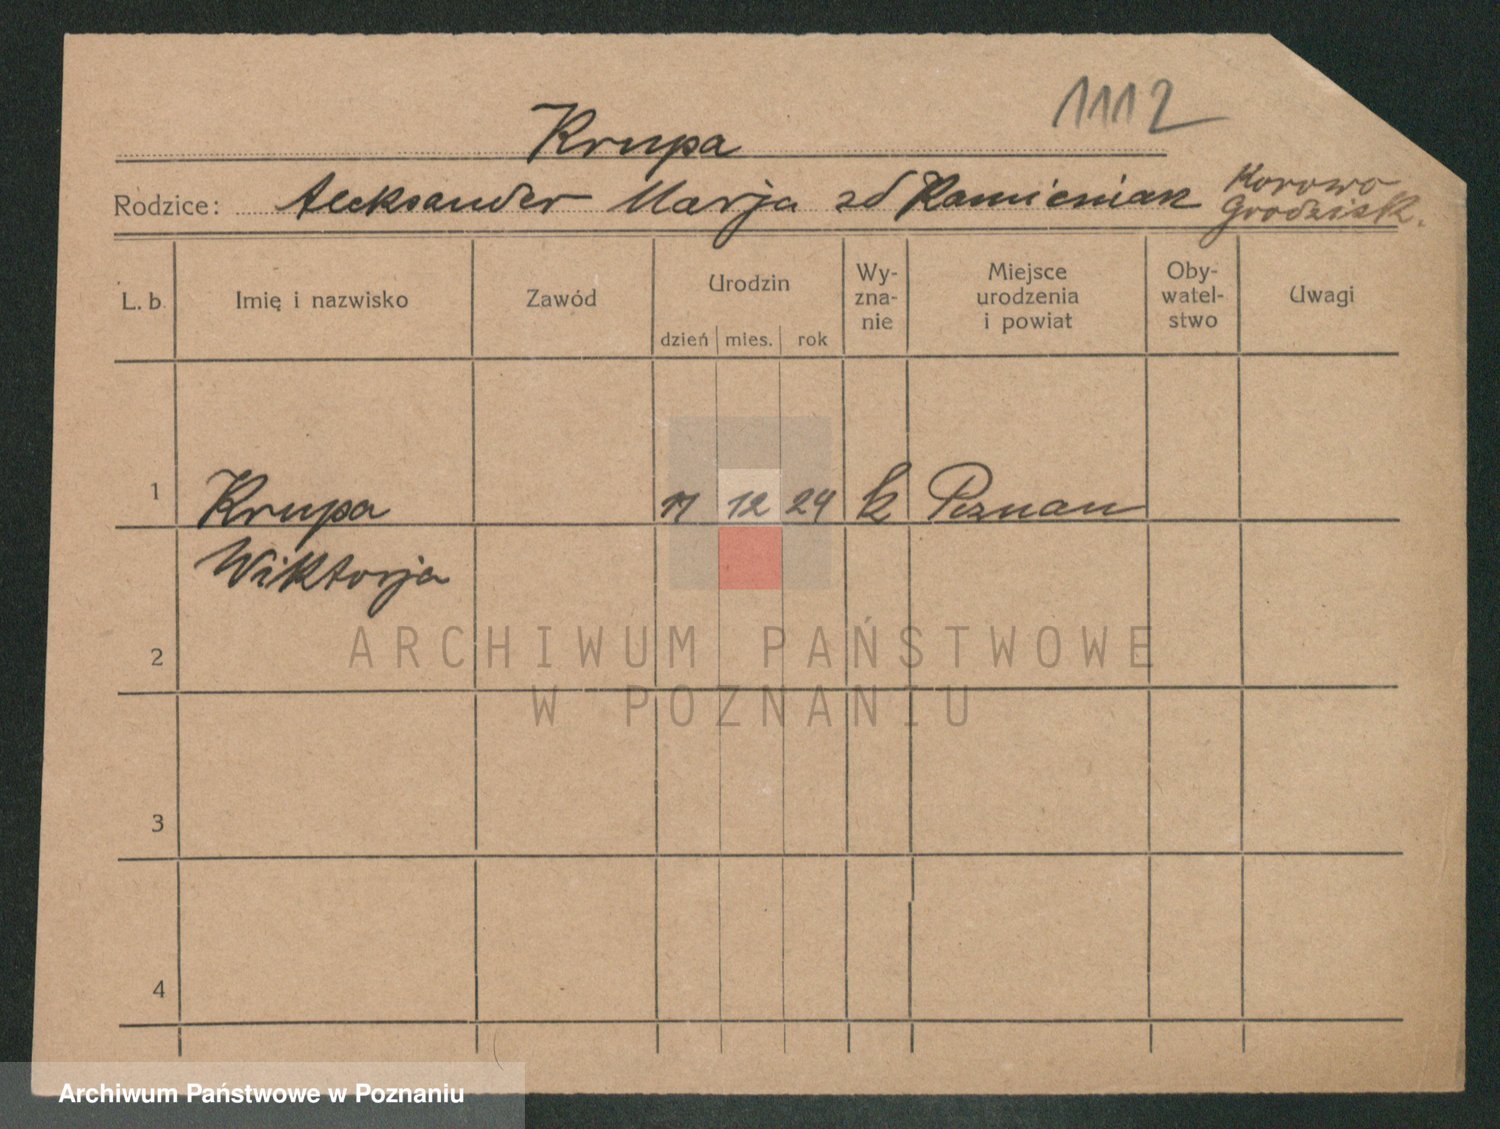 1112
Krupa
Rodzice: Aleksander Marja zd Kamieniak Korowo
Grodzisk.
L. b. Imię i nazwisko Zawód Urodzin dzień mies. rok Wy-zna-nie Miejsce urodzenia i powiat Oby-watel-stwo Uwagi
1 Krupa 17 12 24 k Poznan
Wiktorja
2
ARCHIWUM PAŃSTWOWE
W POZNANIU
3
4
Archiwum Państwowe w Poznaniu